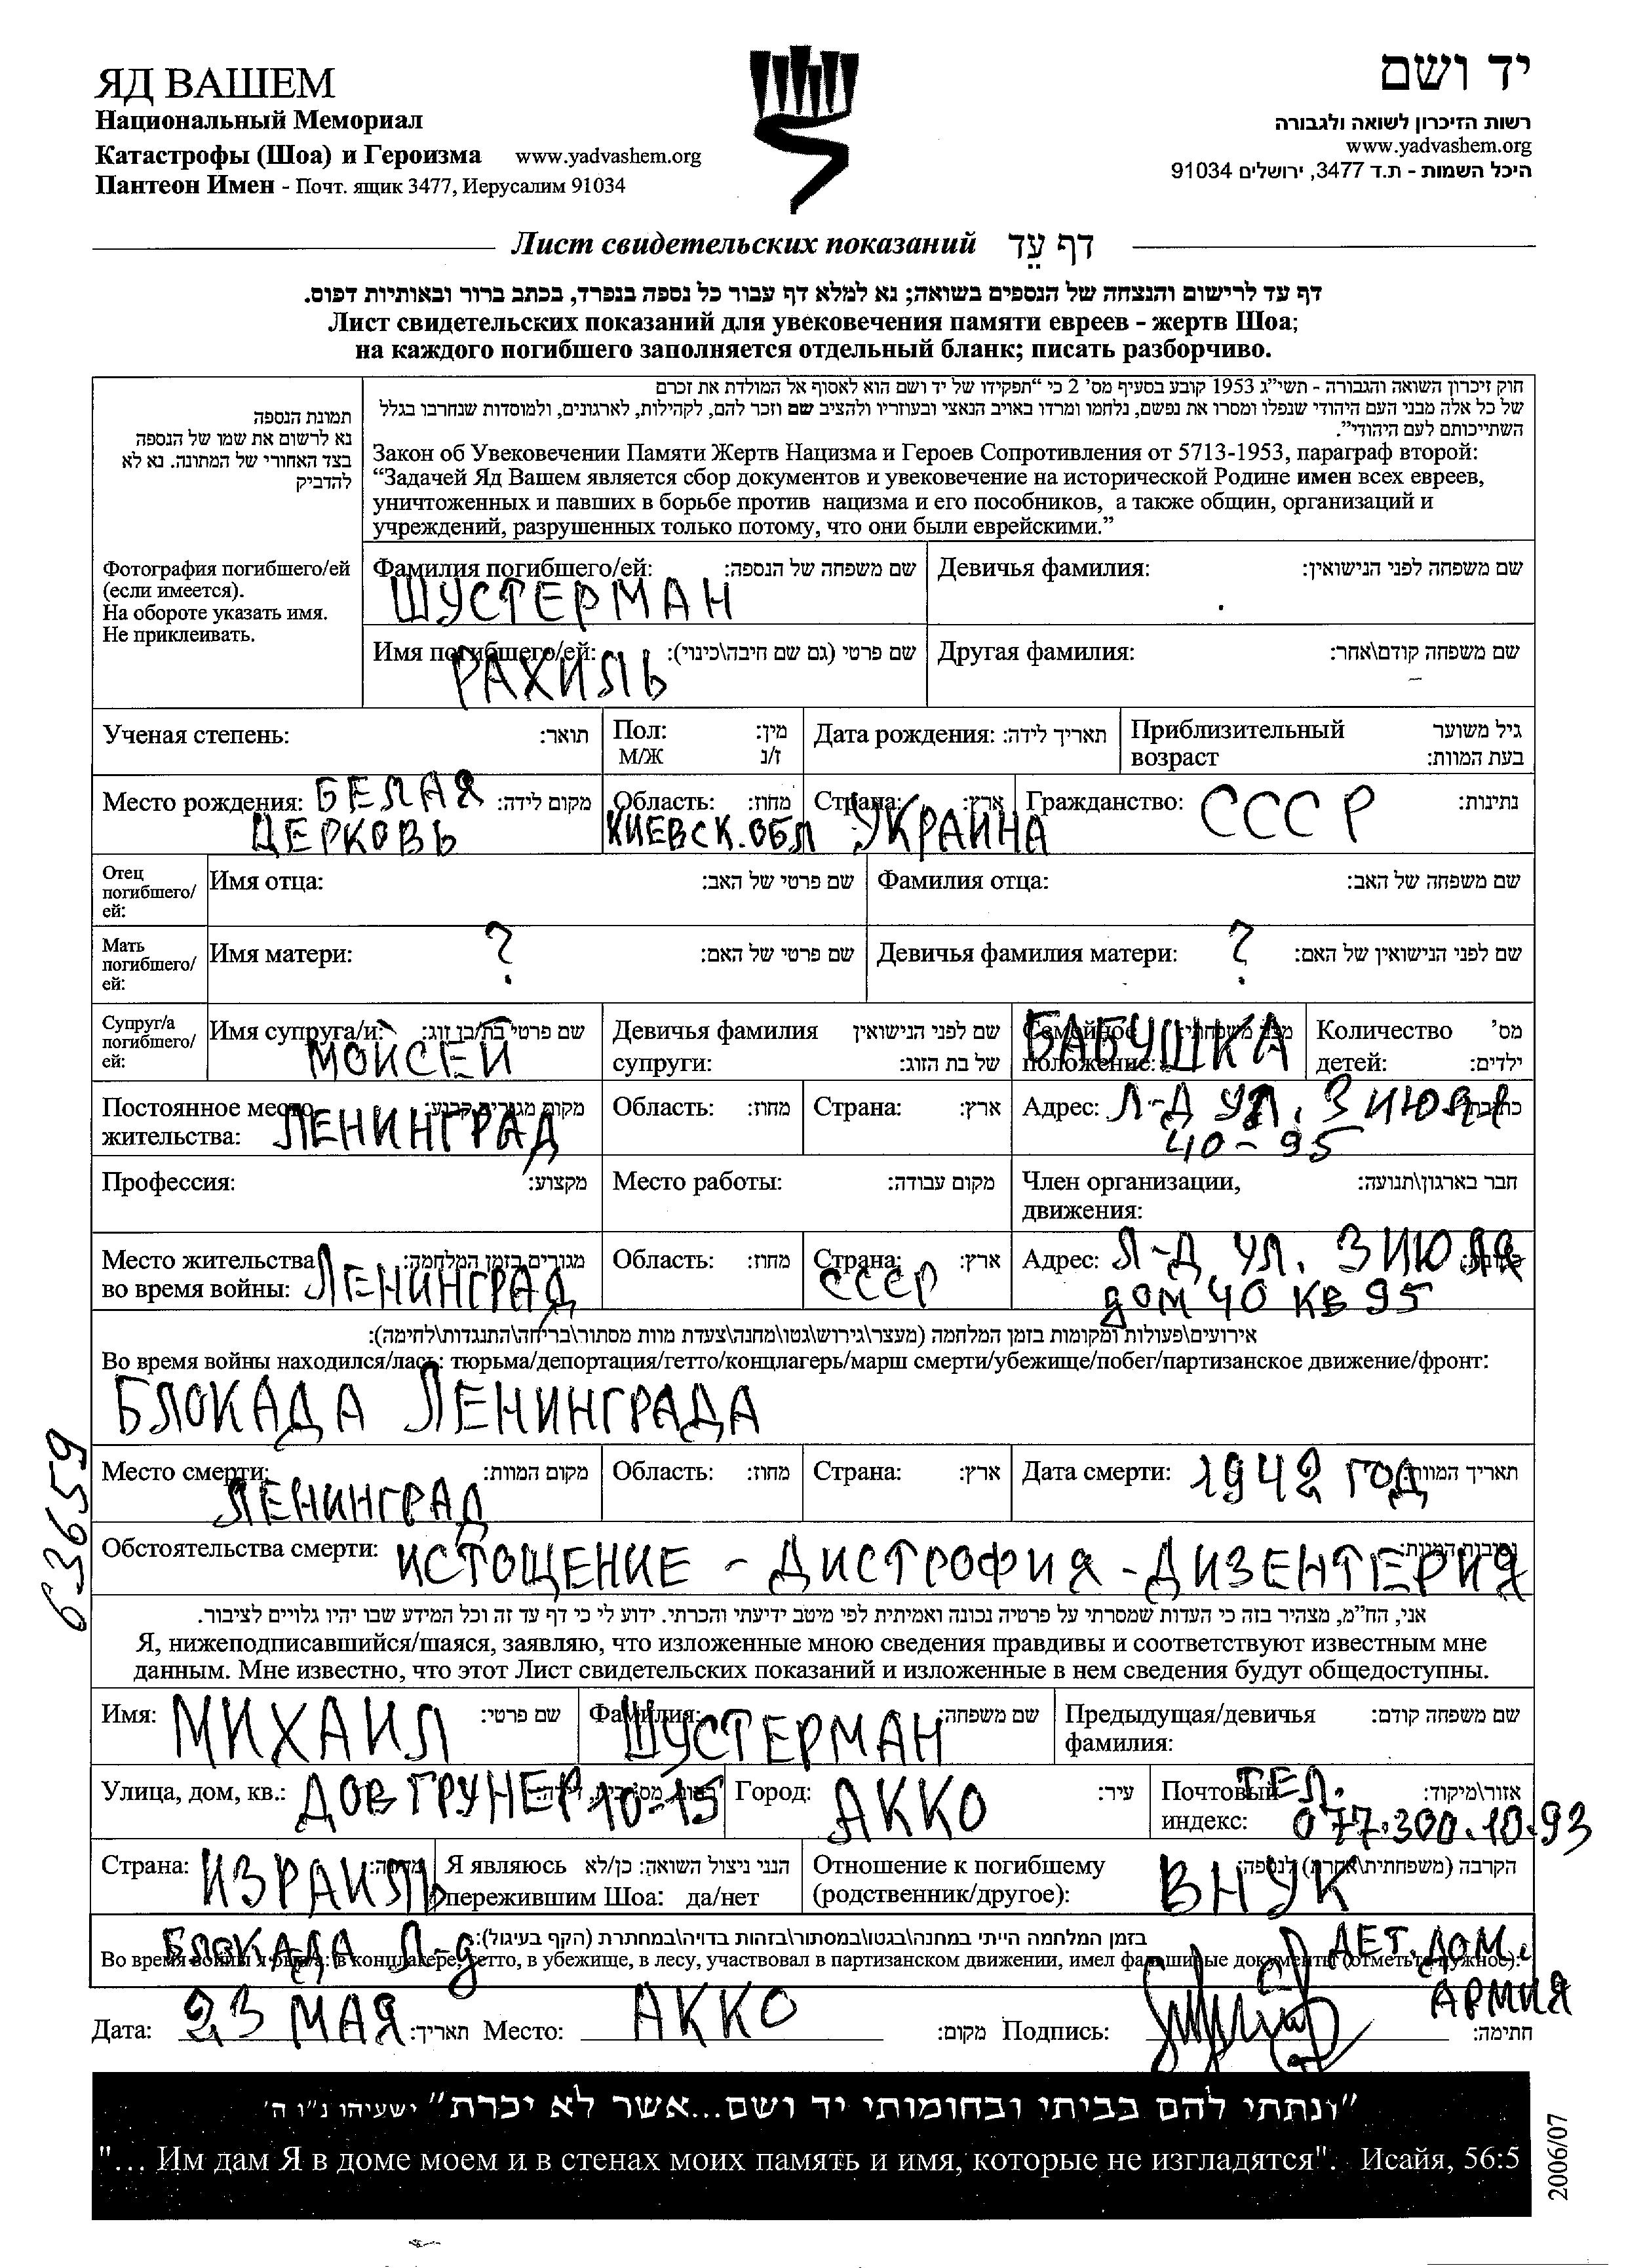 ЯД ВАШЕМ
Национальный Мемориал
Катастрофы (Шоа) и Героизма www.yadvashem.org
Пантеон Имен - Почт. ящик 3477, Иерусалим 91034
יד ושם
רשות הזיכרון לשואה ולגבורה
www.yadvashem.org
היכל השמות - ת.ד 3477, ירושלים 91034
Лист свидетельских показаний דף עֵד
דף עד לרישום והנצחה של הנספים בשואה; נא למלא דף עבור כל נספה בנפרד, בכתב ברור ובאותיות דפוס.
Лист свидетельских показаний для увековечения памяти евреев - жертв Шоа;
на каждого погибшего заполняется отдельный бланк; писать разборчиво.
תמונת הנספה
נא לרשום את שמו של הנספה
בצד האחורי של התמונה. נא לא
להדביק
Фотография погибшего/ей
(если имеется).
На обороте указать имя.
Не приклеивать.
חוק זיכרון השואה והגבורה - תשי"ג 1953 קובע בסעיף מס' 2 כי "תפקידו של יד ושם הוא לאסוף אל המולדת את זכרם
של כל אלה מבני העם היהודי שנפלו ומסרו את נפשם, נלחמו ומרדו באויב הנאצי ובעוזריו ולהציב שם וזכר להם, לקהילות, לארגונים, ולמוסדות שנחרבו בגלל
השתייכותם לעם היהודי".
Закон об Увековечении Памяти Жертв Нацизма и Героев Сопротивления от 5713-1953, параграф второй:
“Задачей Яд Вашем является сбор документов и увековечение на исторической Родине имен всех евреев,
уничтоженных и павших в борьбе против нацизма и его пособников, а также общин, организаций и
учреждений, разрушенных только потому, что они были еврейскими.”
Фамилия погибшего/ей: שם משפחה של הנספה: Девичья фамилия: שם משפחה לפני הנישואין:
ШУСТЕРМАН
Имя погибшего/ей: שם פרטי (גם שם חיבה\כינוי): Другая фамилия: שם משפחה קודם\אחר:
РАХИЛЬ
Ученая степень: תואר: Пол: מין: Дата рождения: תאריך לידה: Приблизительный גיל משוער
М/Ж ז/נ возраст בעת המוות:
Место рождения: БЕЛАЯ מקום לידה: Область: מחוז: Страна: ארץ: Гражданство: СССР נתינות:
ЦЕРКОВЬ КИЕВСК. ОБЛ УКРАИНА
Отец
погибшего/
ей:
Имя отца: שם פרטי של האב: Фамилия отца: שם משפחה של האב:
Мать
погибшего/
ей:
Имя матери: ? שם פרטי של האם: Девичья фамилия матери: ? שם לפני הנישואין של האם:
Супруг/а
погибшего/
ей:
Имя супруга/и: שם פרטי בת/בן זוג: Девичья фамилия שם לפני הנישואין Семейное מצב משפחתי: Количество מס'
МОИСЕЙ супруги: של בת הזוג: положение: БАБУШКА детей: ילדים:
Постоянное место מקום מגורים קבוע: Область: מחוז: Страна: ארץ: Адрес: Л-Д УЛ. 3 ИЮЛЯ כתובת:
жительства: ЛЕНИНГРАД 40-95
Профессия: מקצוע: Место работы: מקום עבודה: Член организации, חבר בארגון\תנועה:
движения:
Место жительства מגורים בזמן המלחמה: Область: מחוז: Страна: ארץ: Адрес: Л-Д УЛ. 3 ИЮЛЯ כתובת:
во время войны: ЛЕНИНГРАД СССР ДОМ 40 КВ 95
אירועים\פעולות ומקומות בזמן המלחמה (מעצר\גירוש\גטו\מחנה\צעדת מוות מסתור\בריחה\התנגדות\לחימה):
Во время войны находился/лась: тюрьма/депортация/гетто/концлагерь/марш смерти/убежище/побег/партизанское движение/фронт:
БЛОКАДА ЛЕНИНГРАДА
63659
Место смерти: מקום המוות: Область: מחוז: Страна: ארץ: Дата смерти: 1942 ГОД תאריך המוות:
ЛЕНИНГРАД
Обстоятельства смерти: ИСТОЩЕНИЕ - ДИСТРОФИЯ - ДИЗЕНТЕРИЯ נסיבות המוות:
אני, הח"מ, מצהיר בזה כי העדות שמסרתי על פרטיה נכונה ואמיתית לפי מיטב ידיעתי והכרתי. ידוע לי כי דף עד זה וכל המידע שבו יהיו גלויים לציבור.
Я, нижеподписавшийся/шаяся, заявляю, что изложенные мною сведения правдивы и соответствуют известным мне
данным. Мне известно, что этот Лист свидетельских показаний и изложенные в нем сведения будут общедоступны.
Имя: МИХАИЛ שם פרטי: Фамилия: ШУСТЕРМАН שם משפחה: Предыдущая/девичья שם משפחה קודם:
фамилия:
Улица, дом, кв.: ДОВ ГРУНЕР 10-15 Город: АККО עיר: Почтовый ТЕЛ. אזור\מיקוד:
индекс: 077.300.10.93
Страна: ИЗРАИЛЬ Я являюсь הנני ניצול השואה: כן/לא Отношение к погибшему הקרבה (משפחתית\אחרת) לנספה:
пережившим Шоа: да/нет (родственник/другое): ВНУК
בזמן המלחמה הייתי במחנה\בגטו\במסתור\בזהות בדויה\במחתרת (הקף בעיגול):
БЛОКАДА Л-Д ДЕТ. ДОМ.
Во время войны я был/а: в концлагере, гетто, в убежище, в лесу, участвовал в партизанском движении, имел фальшивые документы (отметьте нужное):
АРМИЯ
Дата: 23 МАЯ תאריך: Место: АККО מקום: Подпись: חתימה:
"ונתתי להם בביתי ובחומותי יד ושם...אשר לא יכרת" ישעיהו נ"ו ה'
"... Им дам Я в доме моем и в стенах моих память и имя, которые не изгладятся". Исайя, 56:5
2006/07